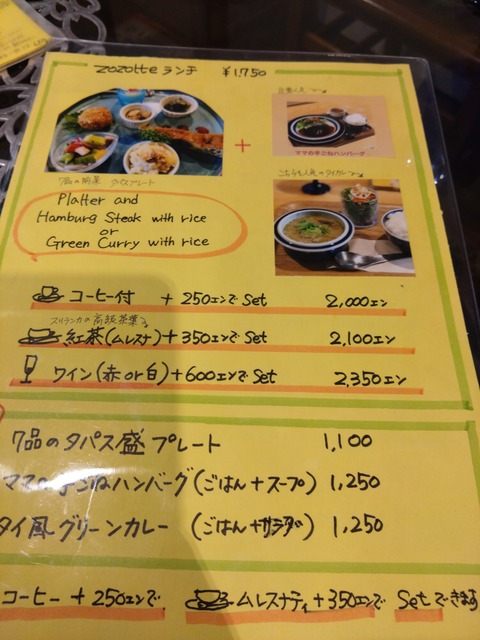 zozotte ランチ ¥1,750
ママの手ごねハンバーグ
Platter and
Hamburg Steak with rice
or
Green Curry with rice
コーヒー付 +250エンでSet 2,000エン
スリランカの高級茶葉
紅茶(ムレスナ)+350エンでSet 2,100エン
ワイン(赤or白)+600エンでSet 2,350エン
7品のタパス盛プレート 1,100
ママの手ごねハンバーグ(ごはん+スープ) 1,250
タイ風グリーンカレー (ごはん+サラダ) 1,250
コーヒー+250エンで ムレスナティ+350エンで Setできます